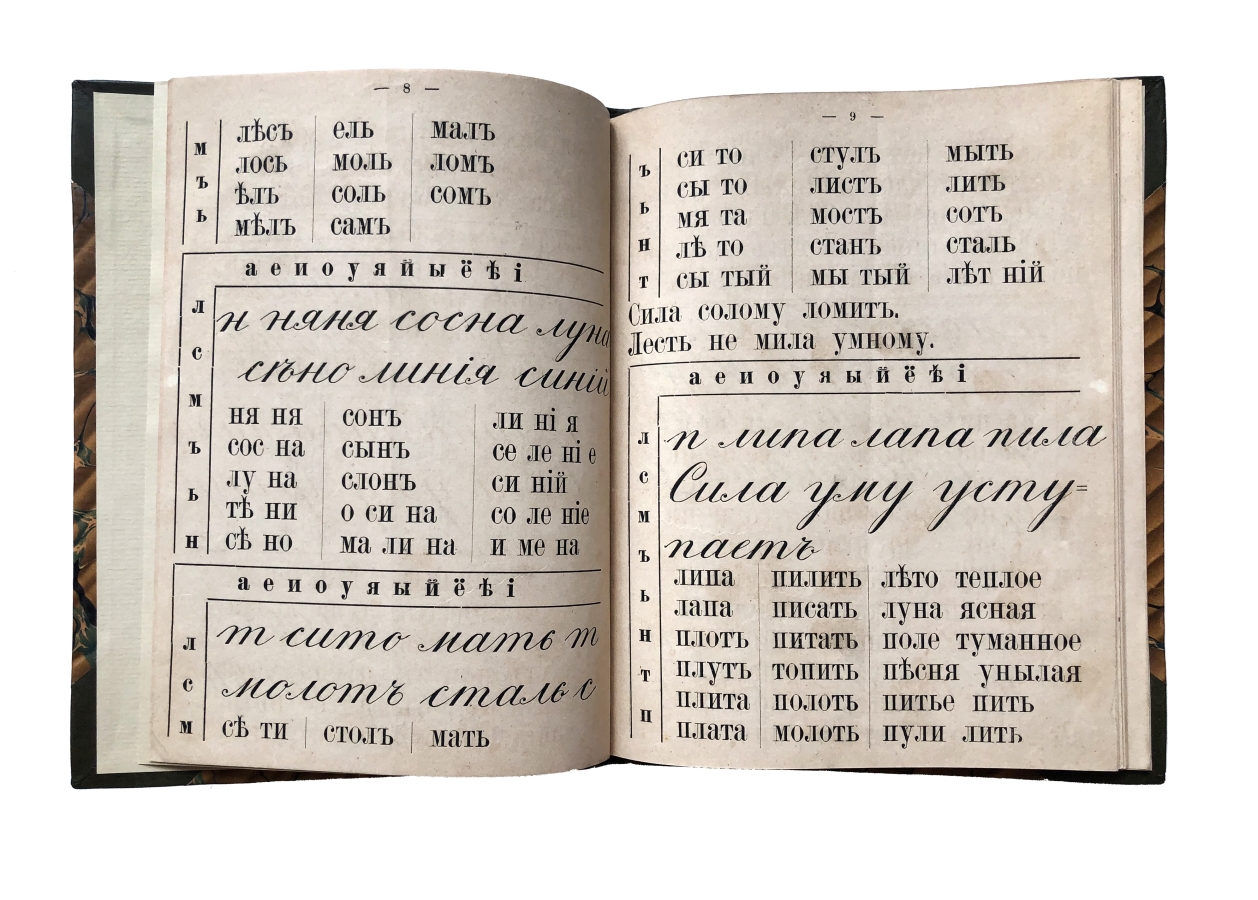 — 8 —
лѣсъ ель малъ
м лось моль ломъ
ъ ѣлъ соль сомъ
ь мѣлъ самъ
а е и о у я й ы ё ѣ і
л н няня сосна луна
с сѣно линія синій
м ня ня сонъ ли ні я
сос на сынъ се ле ні е
ъ лу на слонъ си ній
ь тѣ ни о си на со ле ніе
н сѣ но ма ли на и ме на
а е и о у я ы й ё ѣ і
л т сито мать т
с молотъ сталь с
м сѣ ти столъ мать
— 9 —
ъ си то стулъ мыть
ь сы то листъ лить
мя та мостъ сотъ
н лѣ то станъ сталь
т сы тый мы тый лѣт ній
Сила солому ломитъ.
Лесть не мила умному.
а е и о у я ы й ё ѣ і
л п липа лапа пила
с Сила уму усту=
м паетъ
ъ липа пилить лѣто теплое
ь лапа писать луна ясная
н плотъ питать поле туманное
т плутъ топить пѣсня унылая
плита полоть питье пить
п плата молоть пули лить